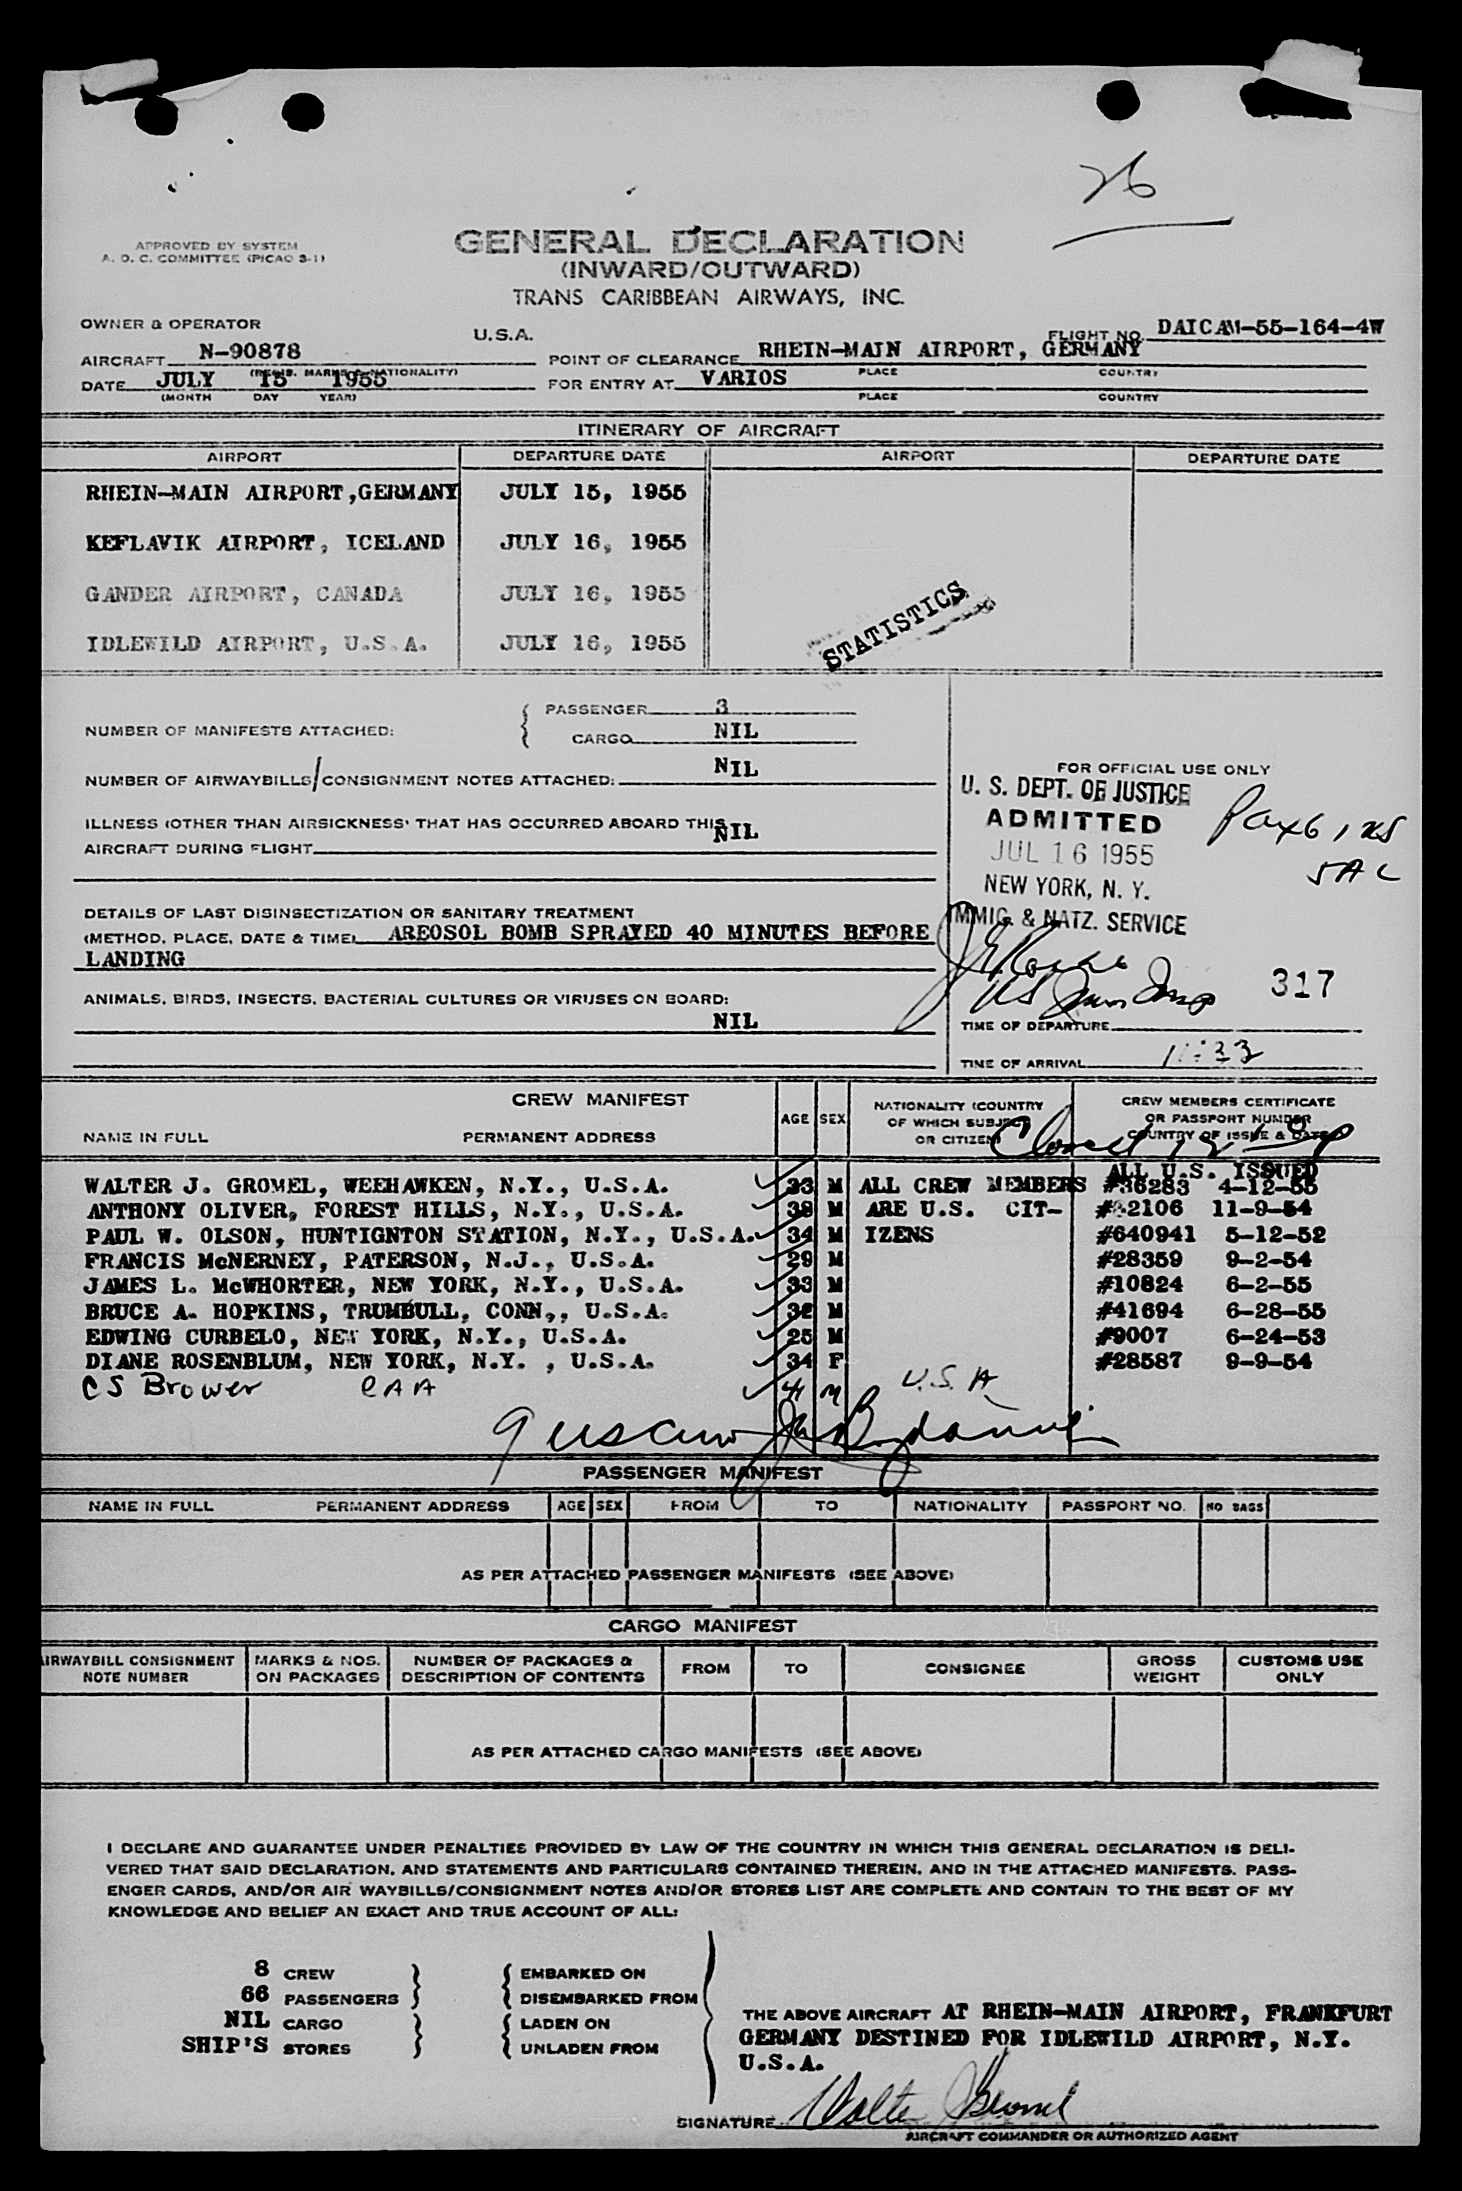 26
APPROVED BY SYSTEM
A. O. C. COMMITTEE (PICAO 3-1)
GENERAL DECLARATION
(INWARD/OUTWARD)
TRANS CARIBBEAN AIRWAYS, INC.
OWNER & OPERATOR
U.S.A.
FLIGHT NO. DAICAM-55-164-4W
AIRCRAFT N-90878
POINT OF CLEARANCE RHEIN-MAIN AIRPORT, GERMANY
(REGIS. MARKS & NATIONALITY)
PLACE COUNTRY
DATE JULY 15 1955
FOR ENTRY AT VARIOS
(MONTH DAY YEAR)
PLACE COUNTRY
ITINERARY OF AIRCRAFT
AIRPORT DEPARTURE DATE AIRPORT DEPARTURE DATE
RHEIN-MAIN AIRPORT,GERMANY JULY 15, 1955
KEFLAVIK AIRPORT, ICELAND JULY 16, 1955
GANDER AIRPORT, CANADA JULY 16, 1955
IDLEWILD AIRPORT, U.S.A. JULY 16, 1955
STATISTICS
NUMBER OF MANIFESTS ATTACHED:
PASSENGER 3
CARGO NIL
NUMBER OF AIRWAYBILLS/CONSIGNMENT NOTES ATTACHED: NIL
ILLNESS (OTHER THAN AIRSICKNESS) THAT HAS OCCURRED ABOARD THIS
AIRCRAFT DURING FLIGHT NIL
DETAILS OF LAST DISINSECTIZATION OR SANITARY TREATMENT
(METHOD, PLACE, DATE & TIME) AREOSOL BOMB SPRAYED 40 MINUTES BEFORE
LANDING
ANIMALS, BIRDS, INSECTS, BACTERIAL CULTURES OR VIRUSES ON BOARD:
NIL
FOR OFFICIAL USE ONLY
U. S. DEPT. OF JUSTICE
ADMITTED
JUL 16 1955
NEW YORK, N. Y.
IMMIG. & NATZ. SERVICE
317
TIME OF DEPARTURE
TIME OF ARRIVAL 11:33
CREW MANIFEST
NAME IN FULL PERMANENT ADDRESS
AGE SEX
NATIONALITY (COUNTRY
OF WHICH SUBJECT
OR CITIZEN)
CREW MEMBERS CERTIFICATE
OR PASSPORT NUMBER
COUNTRY OF ISSUE & DATE
ALL U.S. ISSUED
WALTER J. GROMEL, WEEHAWKEN, N.Y., U.S.A. 33 M ALL CREW MEMBERS #36283 4-12-55
ANTHONY OLIVER, FOREST HILLS, N.Y., U.S.A. 38 M ARE U.S. CIT- 11-9-54
PAUL W. OLSON, HUNTIGNTON STATION, N.Y., U.S.A. 34 M IZENS #640941 5-12-52
FRANCIS McNERNEY, PATERSON, N.J., U.S.A. 29 M #28359 9-2-54
JAMES L. McWHORTER, NEW YORK, N.Y., U.S.A. 33 M #10824 6-2-55
BRUCE A. HOPKINS, TRUMBULL, CONN,, U.S.A. 32 M #41694 6-28-55
EDWING CURBELO, NEW YORK, N.Y., U.S.A. 25 M #9007 6-24-53
DIANE ROSENBLUM, NEW YORK, N.Y. , U.S.A. 34 F #28587 9-9-54
CS Brower CAA 41 M U.S.A.
PASSENGER MANIFEST
NAME IN FULL PERMANENT ADDRESS AGE SEX FROM TO NATIONALITY PASSPORT NO. NO BAGS
AS PER ATTACHED PASSENGER MANIFESTS (SEE ABOVE)
CARGO MANIFEST
AIRWAYBILL CONSIGNMENT
NOTE NUMBER
MARKS & NOS.
ON PACKAGES
NUMBER OF PACKAGES &
DESCRIPTION OF CONTENTS
FROM TO CONSIGNEE
GROSS
WEIGHT
CUSTOMS USE
ONLY
AS PER ATTACHED CARGO MANIFESTS (SEE ABOVE)
I DECLARE AND GUARANTEE UNDER PENALTIES PROVIDED BY LAW OF THE COUNTRY IN WHICH THIS GENERAL DECLARATION IS DELI-
VERED THAT SAID DECLARATION, AND STATEMENTS AND PARTICULARS CONTAINED THEREIN, AND IN THE ATTACHED MANIFESTS, PASS-
ENGER CARDS, AND/OR AIR WAYBILLS/CONSIGNMENT NOTES AND/OR STORES LIST ARE COMPLETE AND CONTAIN TO THE BEST OF MY
KNOWLEDGE AND BELIEF AN EXACT AND TRUE ACCOUNT OF ALL:
8 CREW EMBARKED ON
66 PASSENGERS DISEMBARKED FROM
NIL CARGO LADEN ON
SHIP'S STORES UNLADEN FROM
THE ABOVE AIRCRAFT AT RHEIN-MAIN AIRPORT, FRANKFURT
GERMANY DESTINED FOR IDLEWILD AIRPORT, N.Y.
U.S.A.
SIGNATURE Walter J Gromel
AIRCRAFT COMMANDER OR AUTHORIZED AGENT